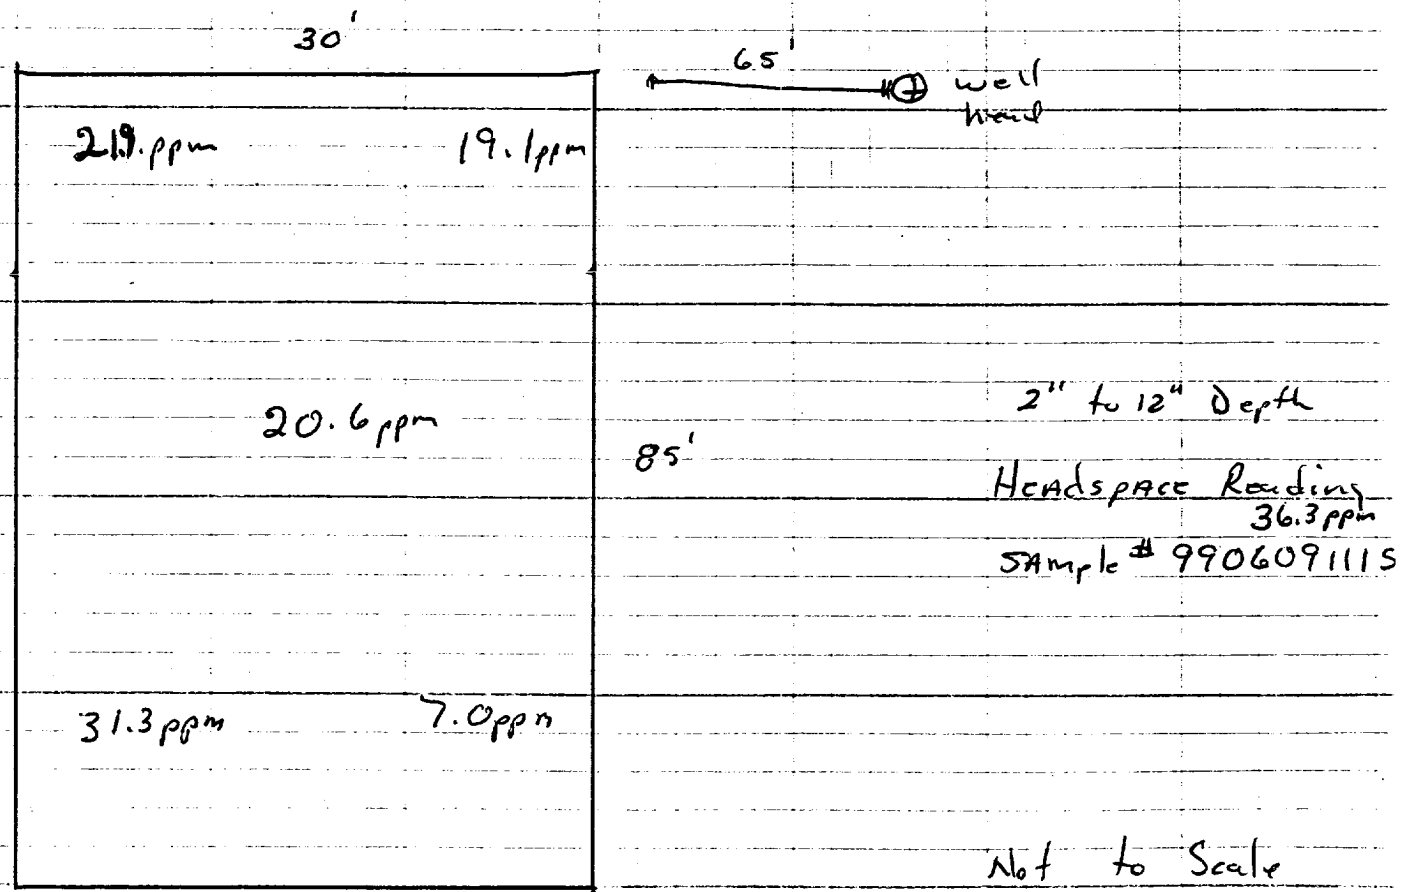 30'
65'
well
head
19.1ppm
20.6ppm
2" to 12" Depth
85'
Headspace Reading
36.3ppm
Sample # 9906091115
31.3ppm
7.0ppm
Not to Scale